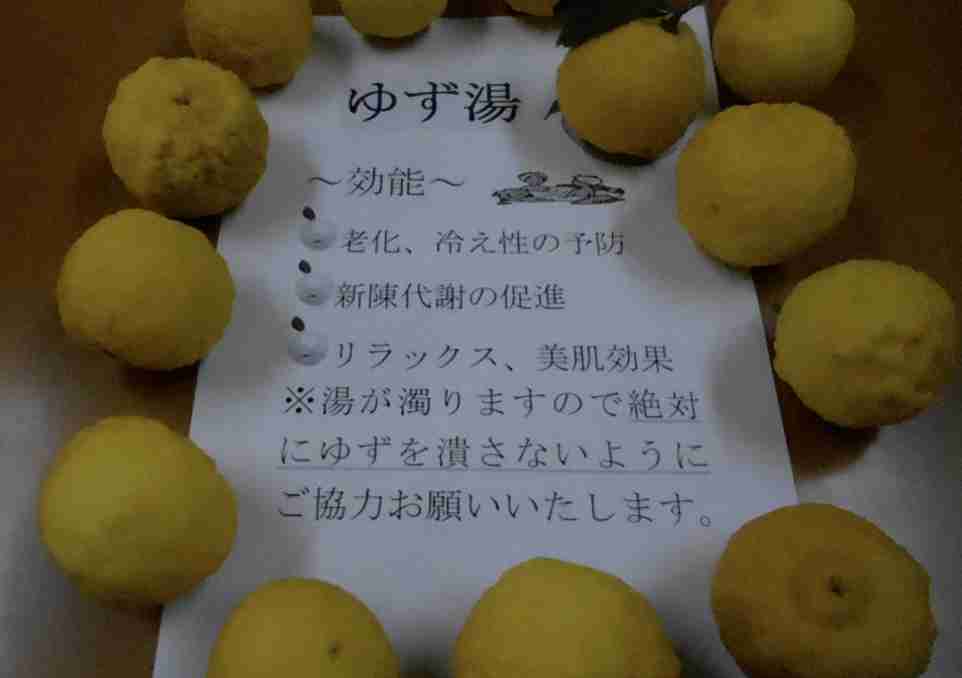 ゆず湯
～効能～
老化、冷え性の予防
新陳代謝の促進
リラックス、美肌効果
※湯が濁りますので絶対
にゆずを潰さないように
ご協力お願いいたします。